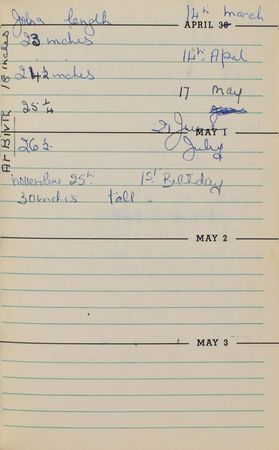 John length 14th March
APRIL 30
23 inches
14th April
24½ inches
17 May
25¼
21 June
MAY 1
26½ July
AT BIRTH 18 inches
November 25th 1st Birthday
30 inches tall.
MAY 2
MAY 3